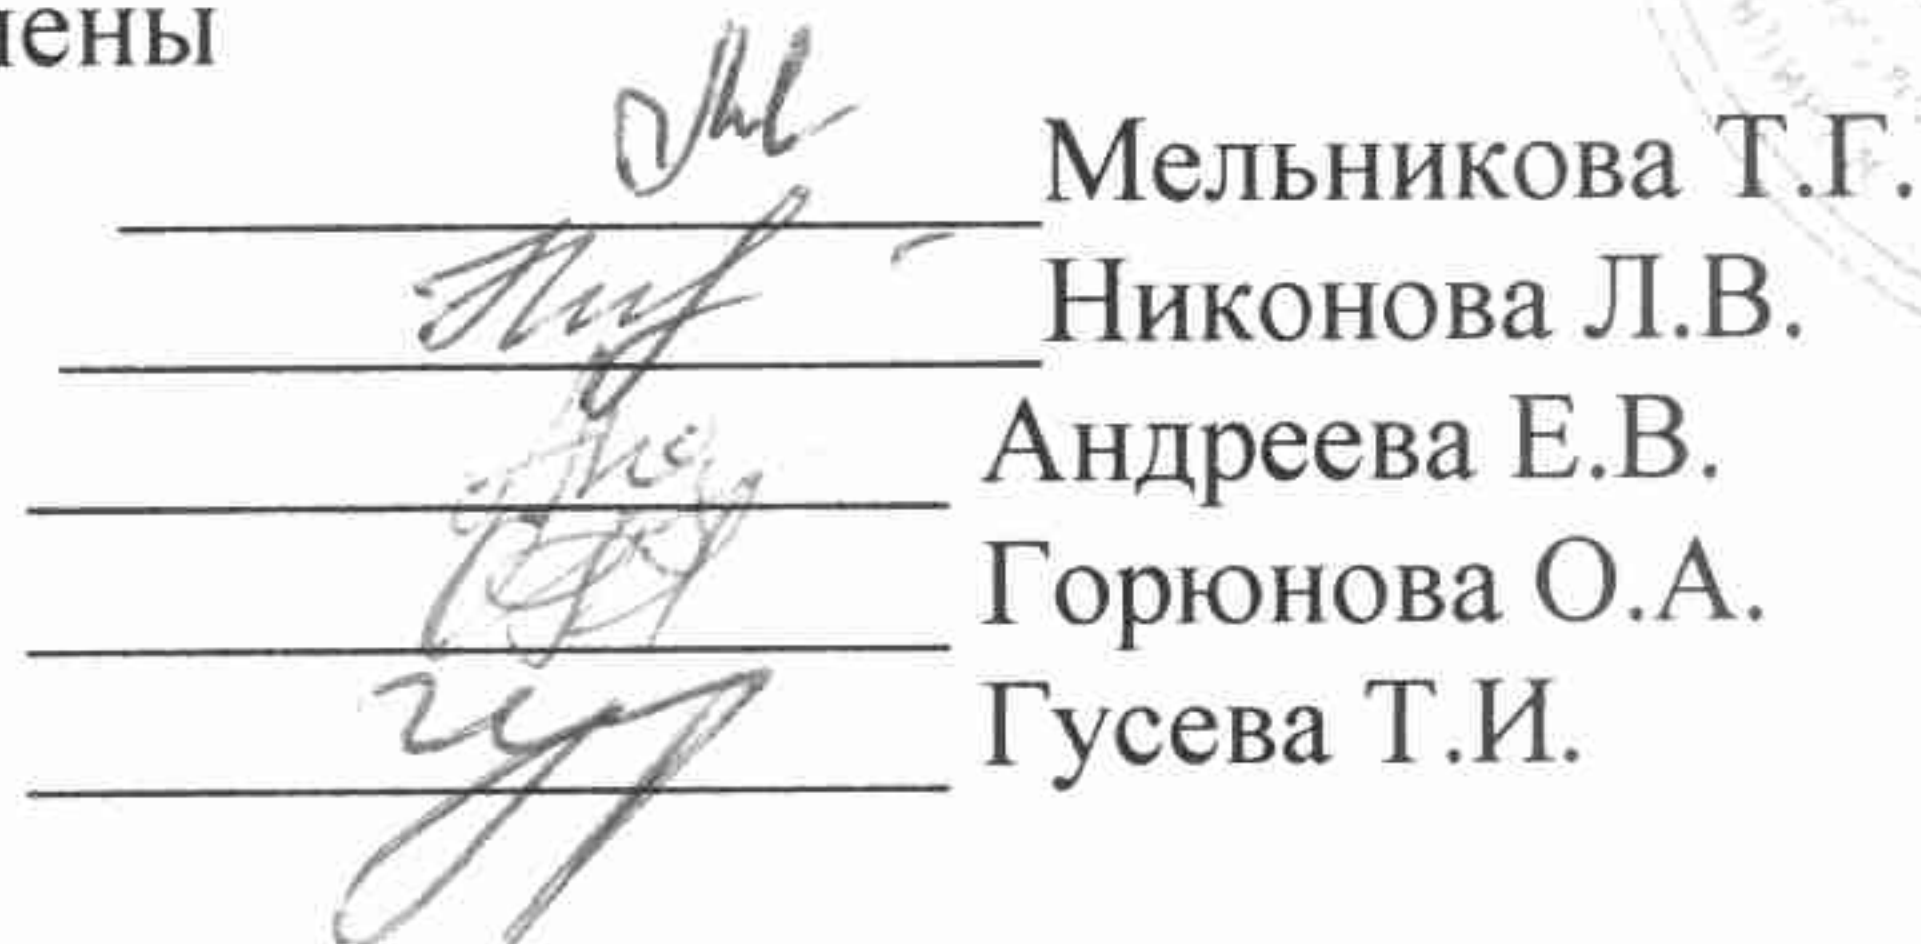 лены
Мельникова Т.Г.
Никонова Л.В.
Андреева Е.В.
Горюнова О.А.
Гусева Т.И.